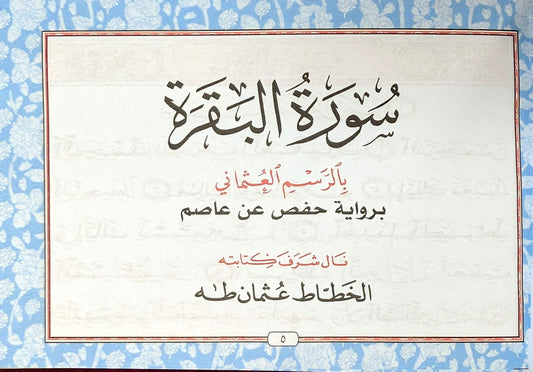 سُورَةُ البَقَرَة
بِٱلرَّسْمِ ٱلعُثْمَاني
برواية حفص عن عاصم
نَال شَرَفَ كِتَابَته
الخَطّاط عُثمَان طٰه
٥